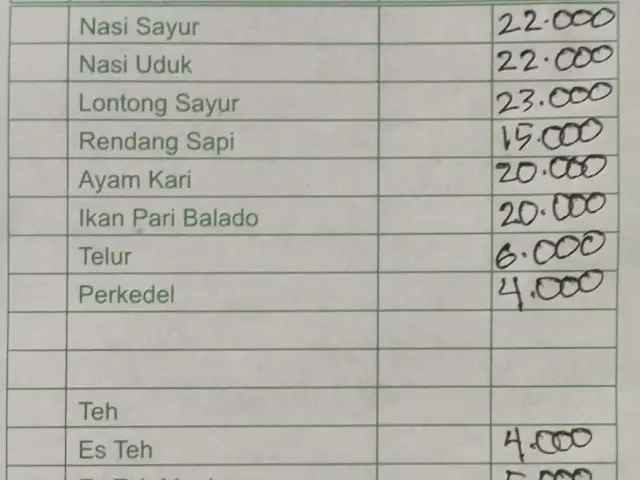 Nasi Sayur 22.000
Nasi Uduk 22.000
Lontong Sayur 23.000
Rendang Sapi 15.000
Ayam Kari 20.000
Ikan Pari Balado 20.000
Telur 6.000
Perkedel 4.000
Teh
Es Teh 4.000